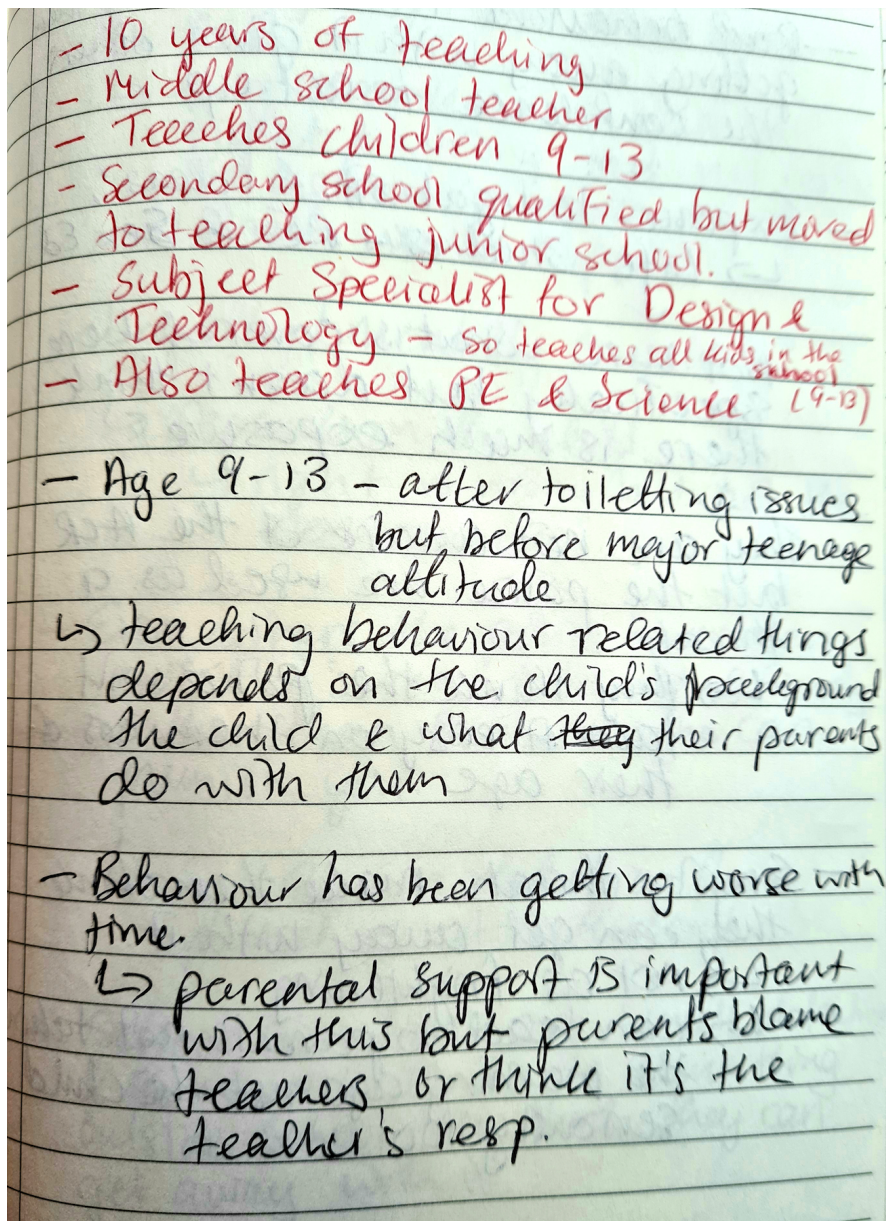 - 10 years of teaching
- Middle school teacher
- Teaches children 9-13
- Secondary school qualified but moved
to teaching junior school.
- Subject Specialist for Design &
Technology - so teaches all kids in the
school
- Also teaches PE & Science (9-13)
- Age 9-13 - after toiletting issues
but before major teenage
attitude
↳ teaching behaviour related things
depends on the child's background
the child & what they their parents
do with them
- Behaviour has been getting worse with
time.
↳ parental support is important
with this but parents blame
teachers or think it's the
teacher's resp.